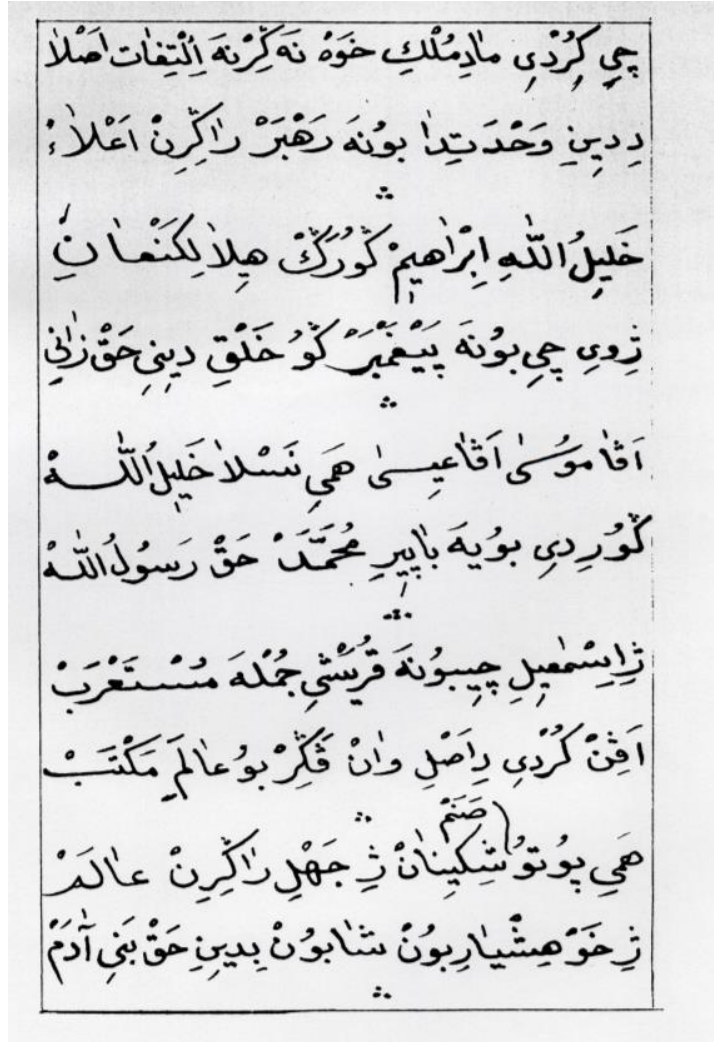 چِي کِرُدْيِ مادِمُلْكِ خوَهْ نَه ݢِرْنَه اِلْتِفٰات اَصْلاٰ
دِدِينِ وَحْدَتِدٰا بوُنَه رَهْبَرْ رٰاݢِرِنْ اَعْلاٰءْ
خَلِيلُ اللّٰهِ اِبْرٰاهِيمْ ݢوُرَكْ هِيلاٰ لِكَنْعٰانِ
ژِويِ چِي بوُنَه پَيْغَمْبَرْ ݢوُ خَلْقِ دِينِ حَقْ زٰانِي
اَڤٰا موُسٰى اَڤٰا عِيسٰى هَمِي نَسْلاٰ خَلِيلُ اللّٰهْ
ݢوُرِديِ بوُيَه بٰاپِيرِ مُحَمَّدْ حَقْ رَسوُلُ اللّٰهْ
ژِاِسْمٰعِيلِ چِيبوُنَه قُرَيْشِي جُمْلَه مُسْتَعْرَبْ
اَڤِنْ كُرْديِ دِاَصْلِ وٰانْ ڤَݢِرْ بوُ عٰالَمِ مَكْتَبْ
صَنَمْ
هَمِي پوُتوُ شِكِينٰانْ ژِ جَهْلِ رٰاݢِرِنْ عٰالَمْ
ژِ خَوْ هِشْيٰارِبوُنْ شٰابوُنْ بِدِينِ حَقْ بَنِي آدَمْ